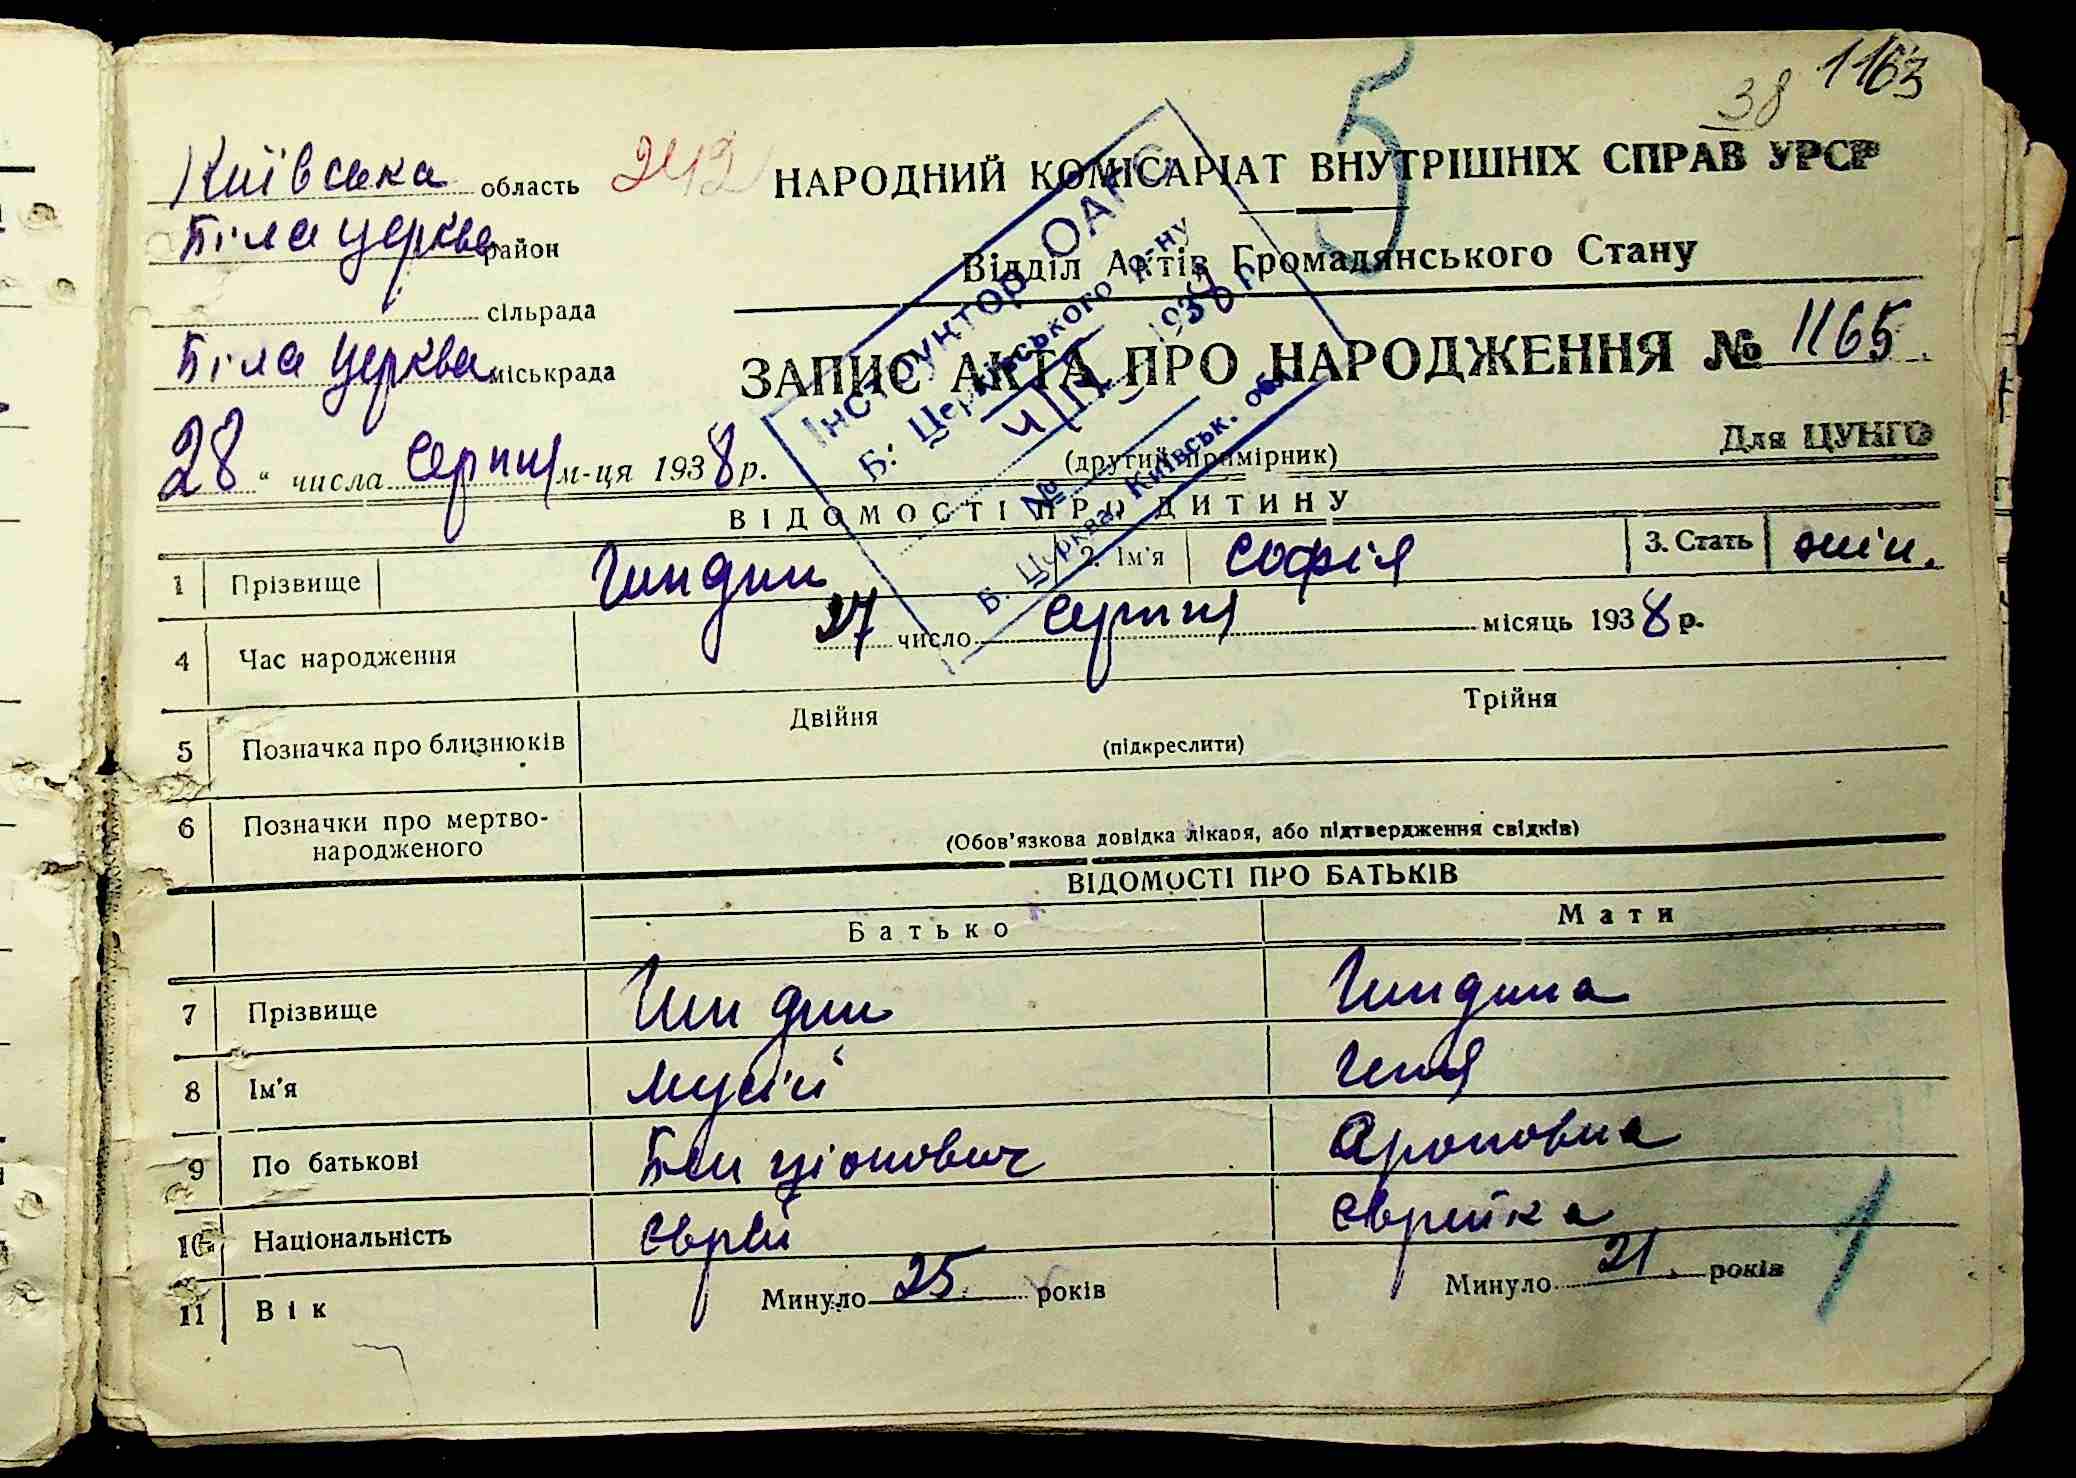 1163
38
Київська область 242 НАРОДНИЙ КОМІСАРІАТ ВНУТРІШНІХ СПРАВ УРСР
5
Біла церква район
Відділ Актів Громадянського Стану
сільрада
Біла Церква міськрада
ЗАПИС АКТА ПРО НАРОДЖЕННЯ № 1165
Інструктор ОАГС
Б. Церківського р-ну
1938 р.
№
Б. Церква, Київськ. обл.
28 " числа серпня м-ця 1938 р.
(другий примірник)
Для ЦУНГО
ВІДОМОСТІ ПРО ДИТИНУ
1 Прізвище Гиндин 2. Ім'я Софія 3. Стать жін.
4 Час народження 27 число серпня місяць 1938 р.
5 Позначка про близнюків Двійня Трійня
(підкреслити)
6 Позначки про мертво-
народженого
(Обов'язкова довідка лікаря, або підтвердження свідків)
ВІДОМОСТІ ПРО БАТЬКІВ
Батько Мати
7 Прізвище Гиндин Гиндина
8 Ім'я Мусій Геня
9 По батькові Бенціонович Ароновна
10 Національність Єврей Єврейка
11 Вік Минуло 25 років Минуло 21 років
1